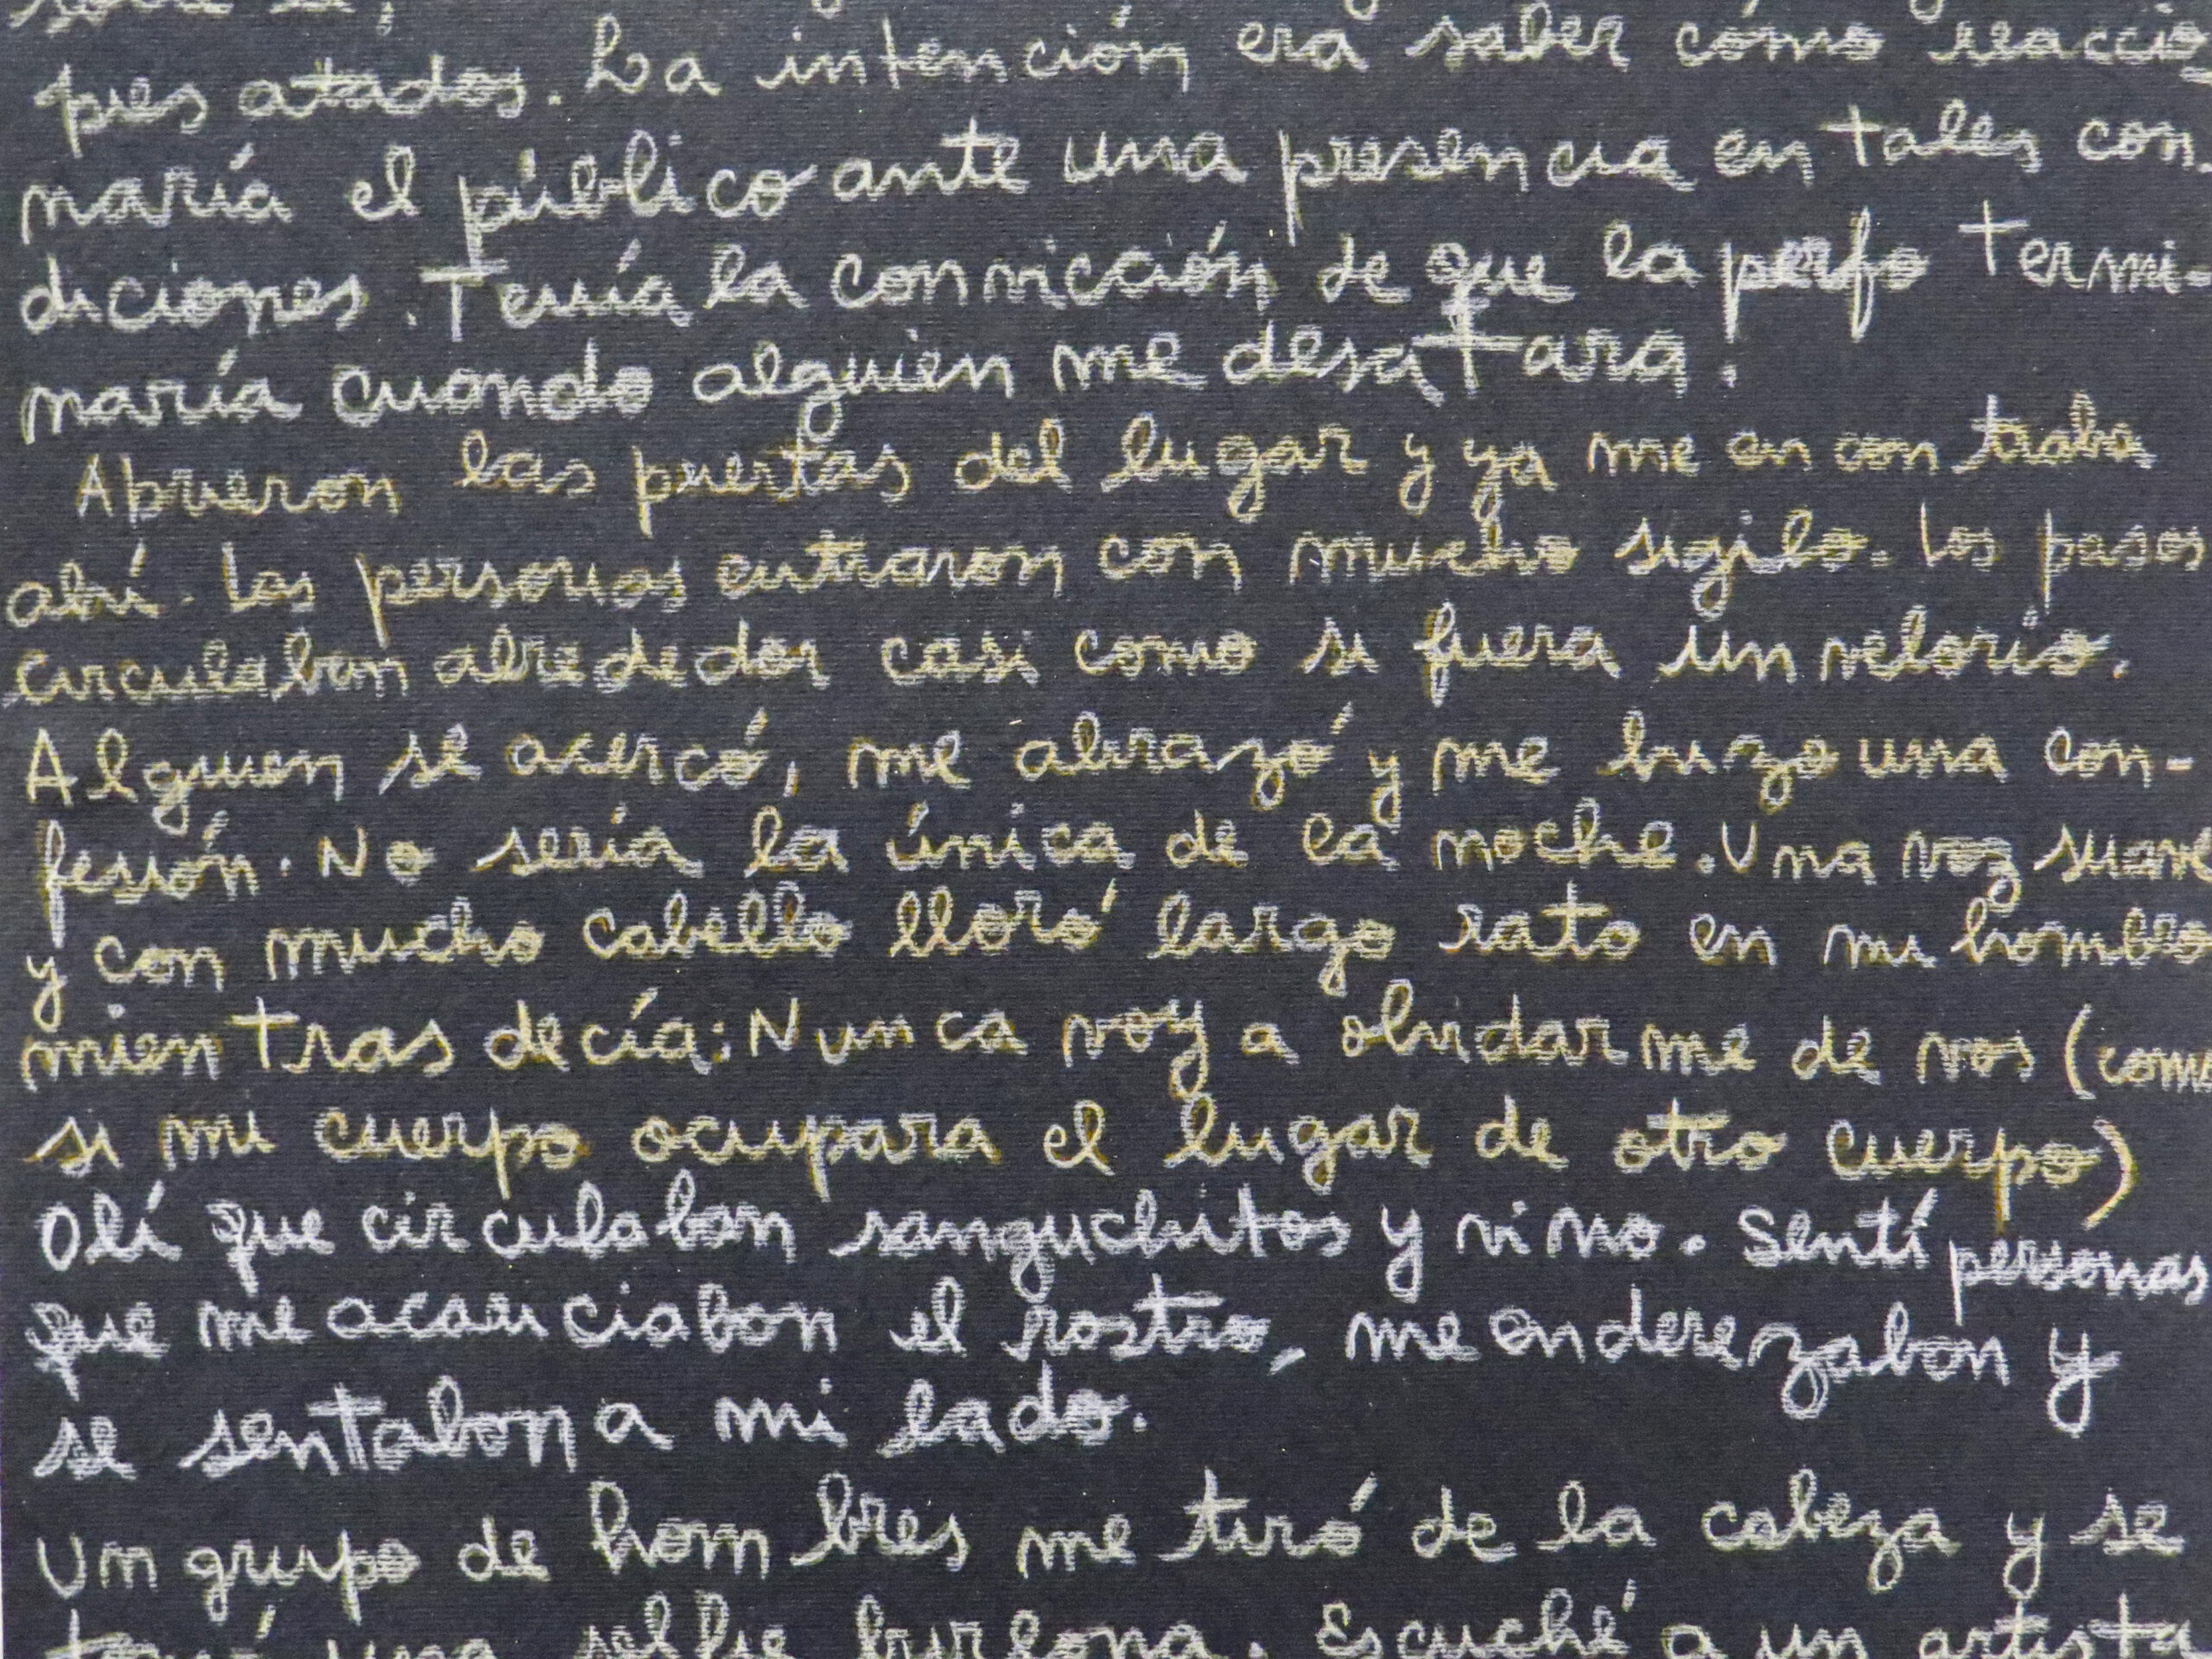 pies atados. La intención era saber cómo reaccio
naría el público ante una presencia en tales con
diciones. Tenía la convicción de que la perfo termi-
naría cuando alguien me desatara.
Abrieron las puertas del lugar y ya me encontraba
ahí. Las personas entraron con mucho sigilo. Los pasos
circulaban alrededor casi como si fuera un velorio.
Alguien se acercó, me abrazó y me hizo una con-
fesión. No sería la única de la noche. Una voz suave
y con mucho cabello lloró largo rato en mi hombro
mientras decía: Nunca voy a olvidarme de vos (como
si mi cuerpo ocupara el lugar de otro cuerpo)
Olí que circulaban sanguchitos y vino. Sentí personas
que me acariciaban el rostro, me enderezaban y
se sentaban a mi lado.
Un grupo de hombres me tiró de la cabeza y se
tomó una selfie burlona. Escuché a un artista